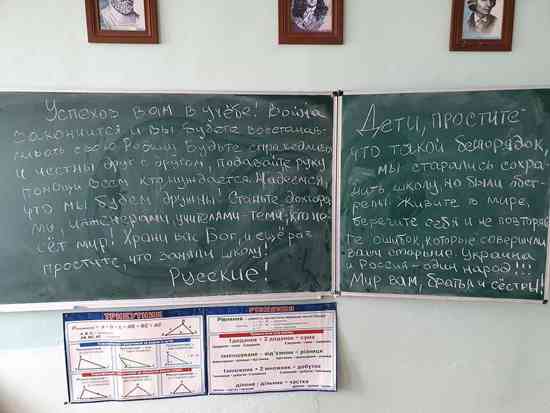 Успехов вам в учёбе! Война
закончится и вы будете восстанав-
ливать свою Родину. Будьте справедливы
и честны друг с другом, подавайте руку
помощи всем кто нуждается. Надеемся,
что мы будем дружны! Станьте доктора-
ми, инженерами, учителями - теми, кто не-
сёт мир! Храни вас Бог, и ещё раз
простите, что заняли школу!
Русские!
Дети, простите
что такой беспорядок,
мы старались сохра-
нить школу но были обст-
релы. Живите в мире,
берегите себя и не повторяй
те ошибок, которые совершили
ваши старшие. Украина
и Россия - один народ!!!
Мир вам, братья и сёстры!
ТРИКУТНИК
РІВНЯННЯ
1 доданок + 2 доданок = сума
зменшуване - від'ємник = різниця
1 множник • 2 множник = добуток
ділене : дільник = частка